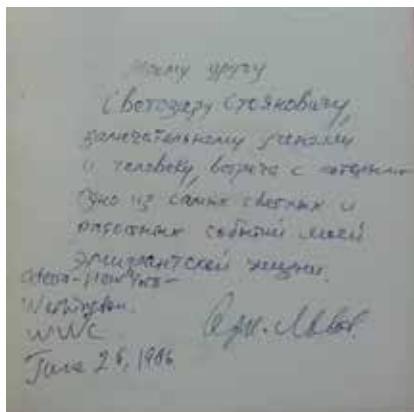 Моему другу
Светозару Стояновичу,
замечательному ученому
и человеку, встреча с которым
одно из самых светлых и
радостных событий моей
эмигрантской жизни.
Odessa - New York -
Washington.
WWC
June 26, 1986
Львов.